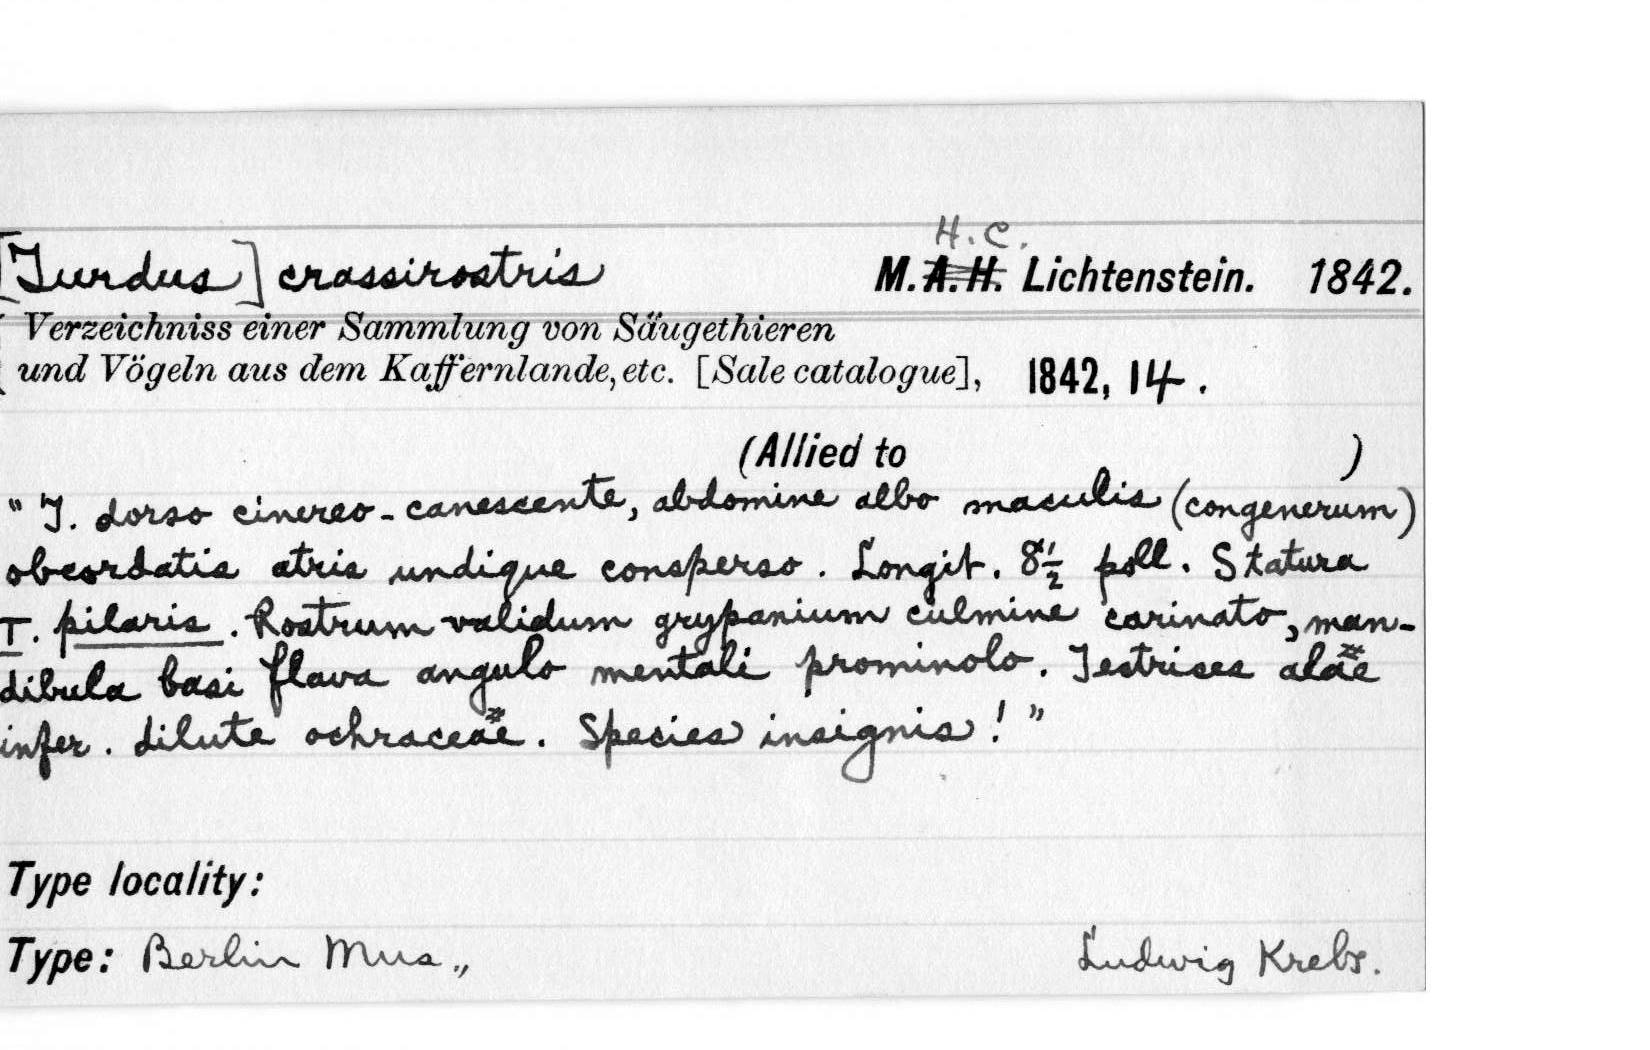 H. C.
[Turdus] crassirostris M. A. H. Lichtenstein. 1842.
( Verzeichniss einer Sammlung von Säugethieren
( und Vögeln aus dem Kaffernlande, etc. [Sale catalogue], 1842, 14.
(Allied to )
"T. dorso cinereo-canescente, abdomine albo maculis (congenerum)
obcordatis atris undique consperso. Longit. 8½" poll. Statura
T. pilaris. Rostrum validum grypanium culmine carinato, man-
dibula basi flava angulo mentali prominolo. Testrises alae
infer. dilute ochraceae. Species insignis!"
Type locality:
Type: Berlin Mus., Ludwig Krebs.